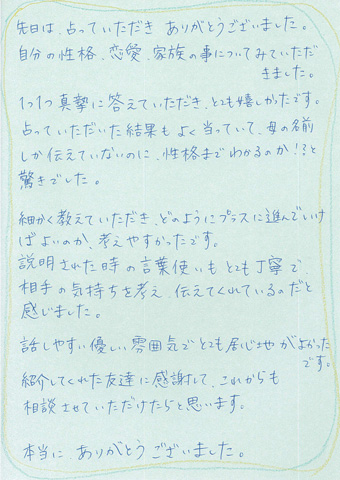 先日は、占っていただき ありがとうございました。
自分の性格、恋愛、家族の事についてみていただ
きました。
1つ1つ真摯に答えていただき、とても嬉しかったです。
占っていただいた結果も よく当っていて、母の名前
しか伝えていないのに、性格まで わかるのか!?と
驚きでした。
細かく教えていただき、どのようにプラスに進んでいけ
ばよいのか、考えやすかったです。
説明された時の言葉使いも とても丁寧で
相手の気持ちを考え、伝えてくれているのだと
感じました。
話しやすい優しい雰囲気で とても居心地 がよかった
です。
紹介してくれた友達に感謝して、これからも
相談させていただけたらと思います。
本当に ありがとうございました。